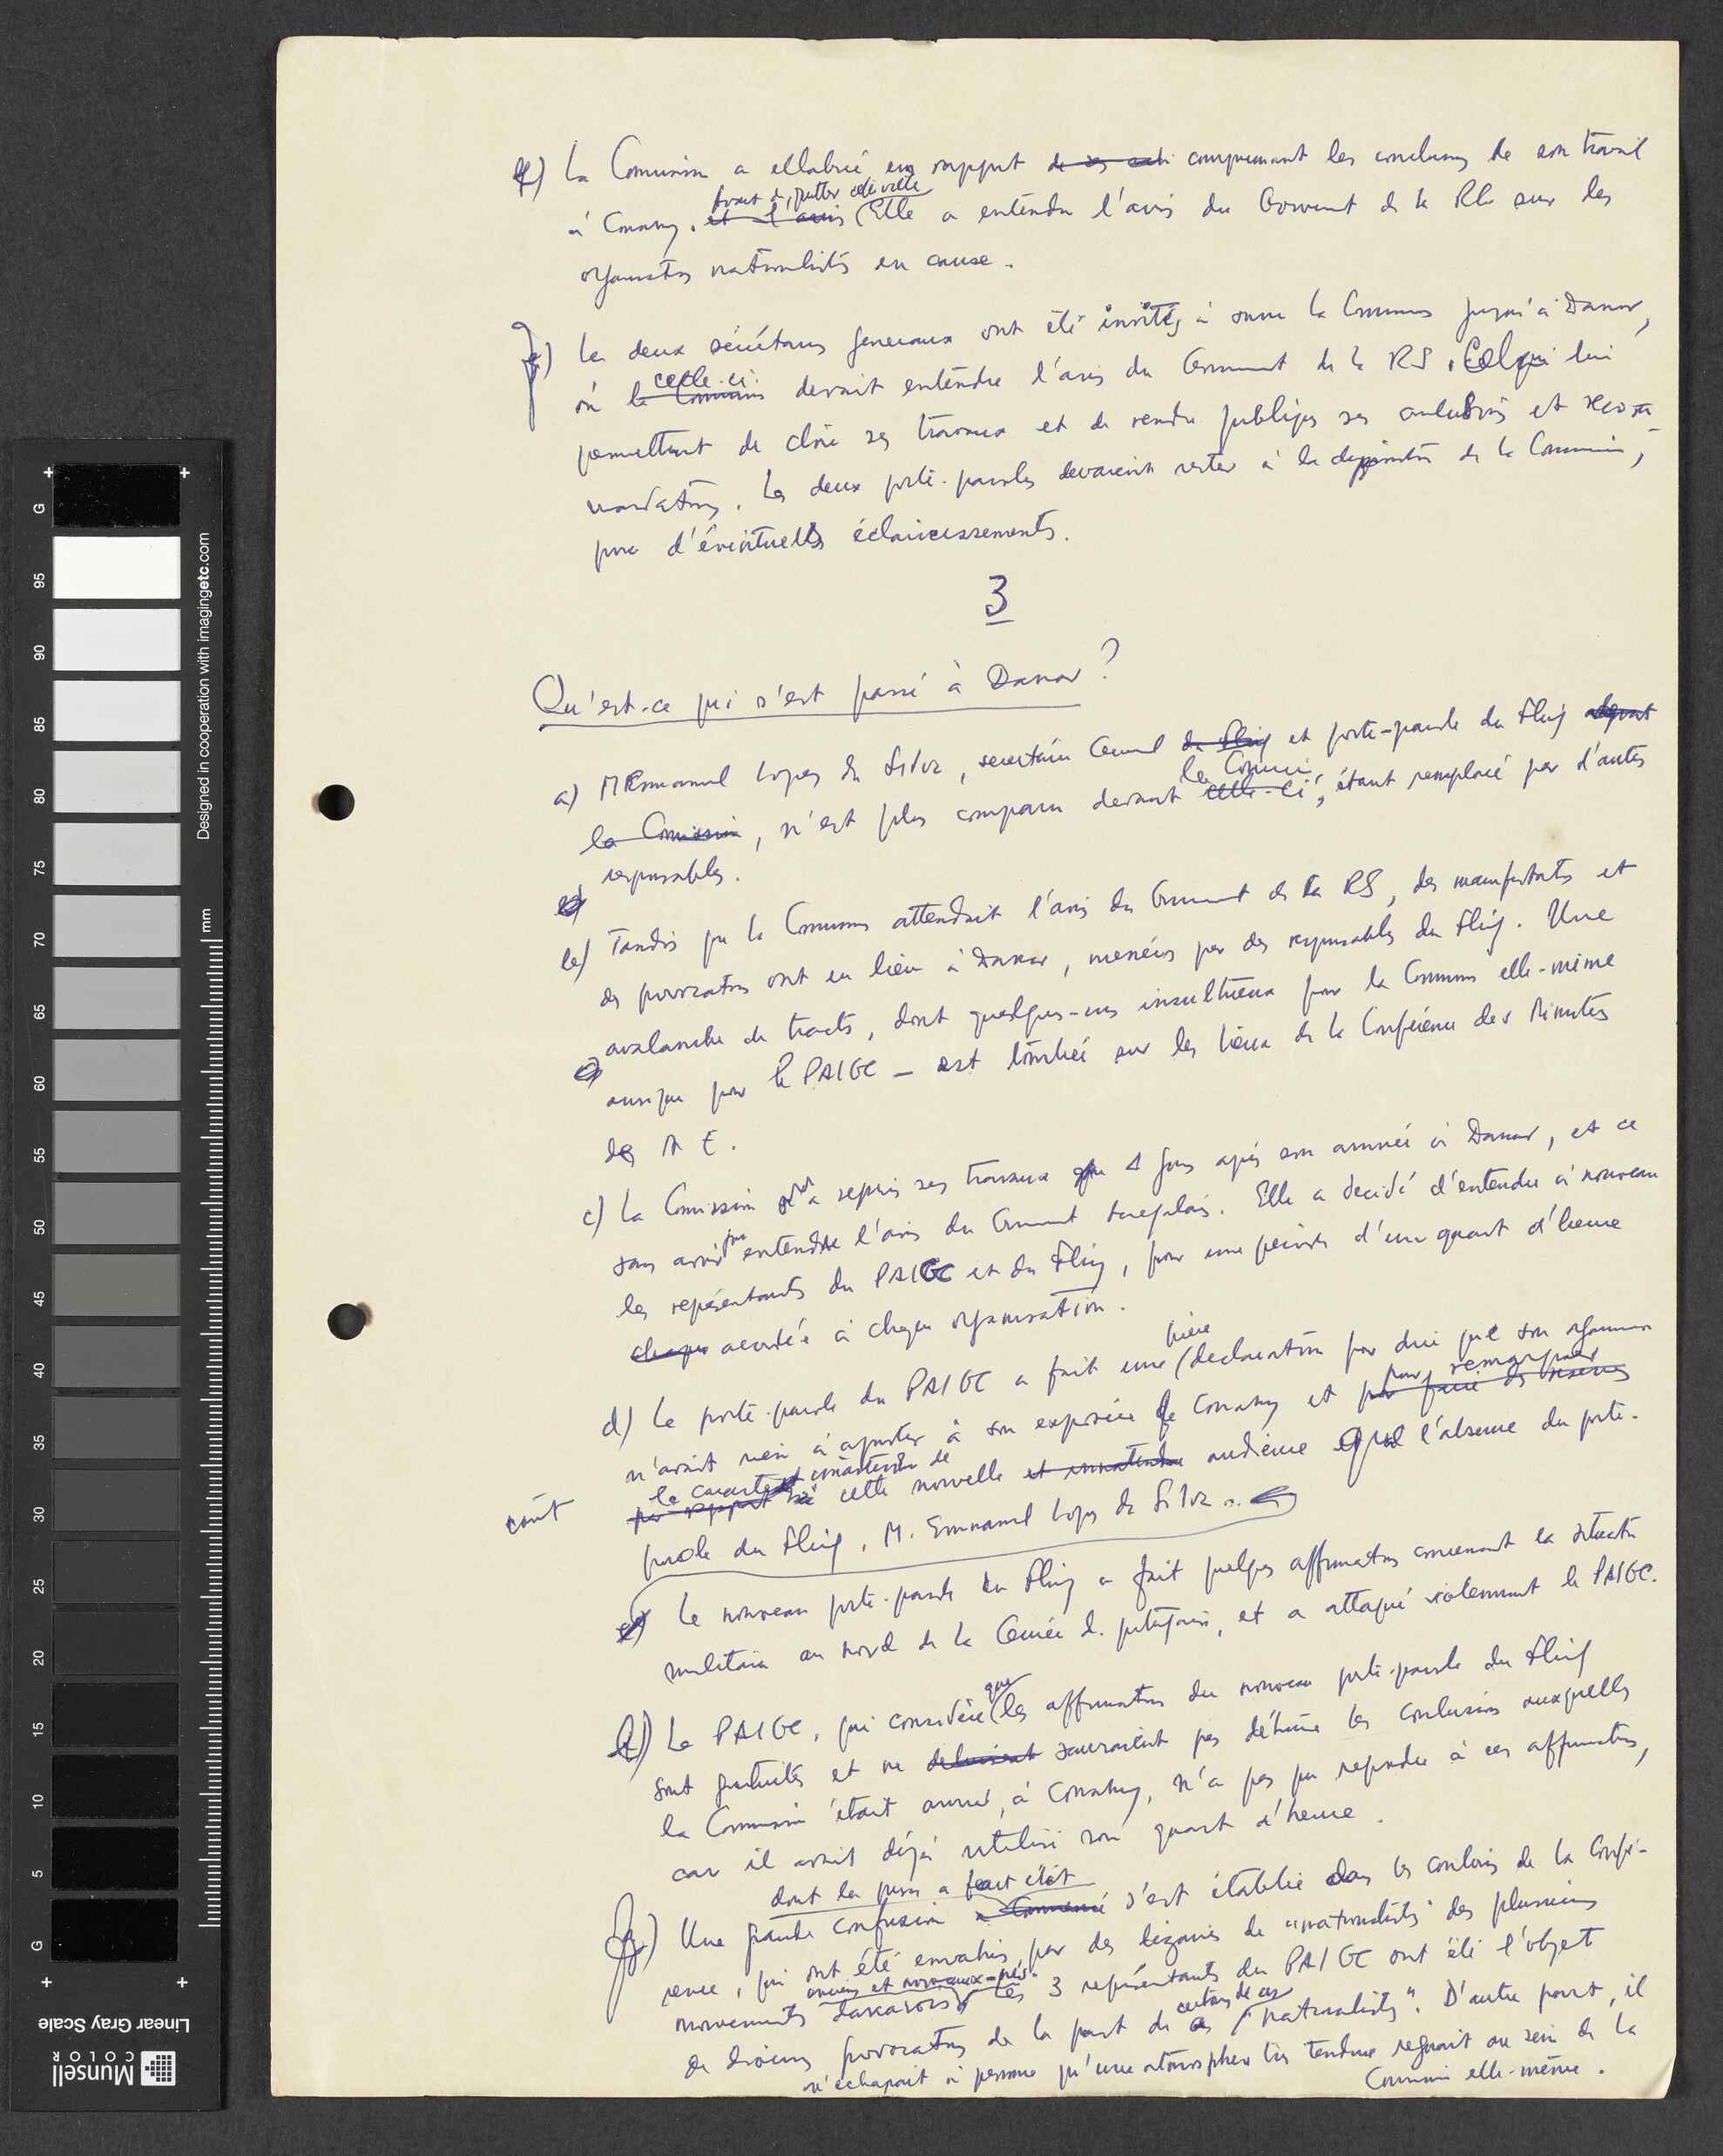 La Commission a ellaboré un rapport de ses comprenant les conclusions de son travail
avant de quitter cette ville
à Conakry. et l'avis Elle a entendu l'avis du Gouvernement de la RG sur les
organisations nationalistes en cause.
Les deux secrétaires generaux ont été invités à suivre la Commission jusqu'à Dakar,
celle-ci
où la Commission devait entendre l'avis du Gouvernement de la RS. Ce qui lui
permettrait de clore ses travaux et de rendre publiques ses conclusions et recom-
mandations. Les deux porte-paroles devaient rester à la disposition de la Commission,
pour d'éventuells éclaircissements.
3
Qu'est-ce qui s'est passé à Dakar?
a) M Emmanuel Lopes da Silva, secrétaire Général du Fling et porte-parole du Fling
la Commission
la Commission, n'est plus comparu devant celle-ci, étant remplacé par d'autres
responsables.
b) Tandis que la Commission attendait l'avis du Gouvernement de la RS, des manifestations et
des provocations ont eu lieu à Dakar, menées par des responsables du Fling. Une
avalanche de tracts, dont quelques-uns insultueux pour la Commission elle-même
ainsi que pour le PAIGC — est tombée sur les lieux de la Conférence des Ministres
des A E.
c) La Comission a repris ses travaux 4 jours après son arrivée à Dakar, et ce
sans avoir pu entendre l'avis du Gouvernement sénégalais. Elle a decidé d'entendre à nouveau
les représentants du PAIGC et du Fling, pour une période d'un quart d'heure
chaque accordée à chaque organisation.
brève
d) Le porte-parole du PAIGC a fait une declaration pour dire que son organisation
pour remarquer
n'avait rien à ajouter à son exposé de Conakry et pour faire des réserves
le caractère inattendu de
par rapport à cette nouvelle et inattendue audience et l'absence du porte-
parole du Fling, M. Emmanuel Lopes da Silva.
e) Le nouveau porte-parole du Fling a fait quelques affirmations concernant la situation
militaire au nord de la Guinée d. portugaise, et a attaqué violemment le PAIGC.
que
f) Le PAIGC, qui considère les affirmations du nouveau porte-parole du Fling
sont gratuites et ne detruisent sauraient pas détruire les conclusions auxquelles
la Commission était arrivée, à Conakry, n'a pas pu repondre à ces affirmations,
car il avait déjà utilisé son quart d'heure.
dont la presse a fait état
g) Une grande confusion a commencé s'est établie dans les couloirs de la Confé-
rence, qui ont été envahis par des dizaines de "nationalistes" des plusieurs
anciens et nouveaux-nés.
mouvements dakarois Les 3 représentants du PAIGC ont été l'objet
certains de ces
de diverses provocations de la part de ces "nationalistes". D'autre part, il
n'échapait à personne qu'une atmosphere très tendue regnait au sein de la
Commission elle-même.
Designed in cooperation with imagingetc.com
mm
G
95
90
85
80
75
70
65
60
55
50
45
40
35
30
25
20
15
10
5
G
Linear Gray Scale
Munsell
COLOR